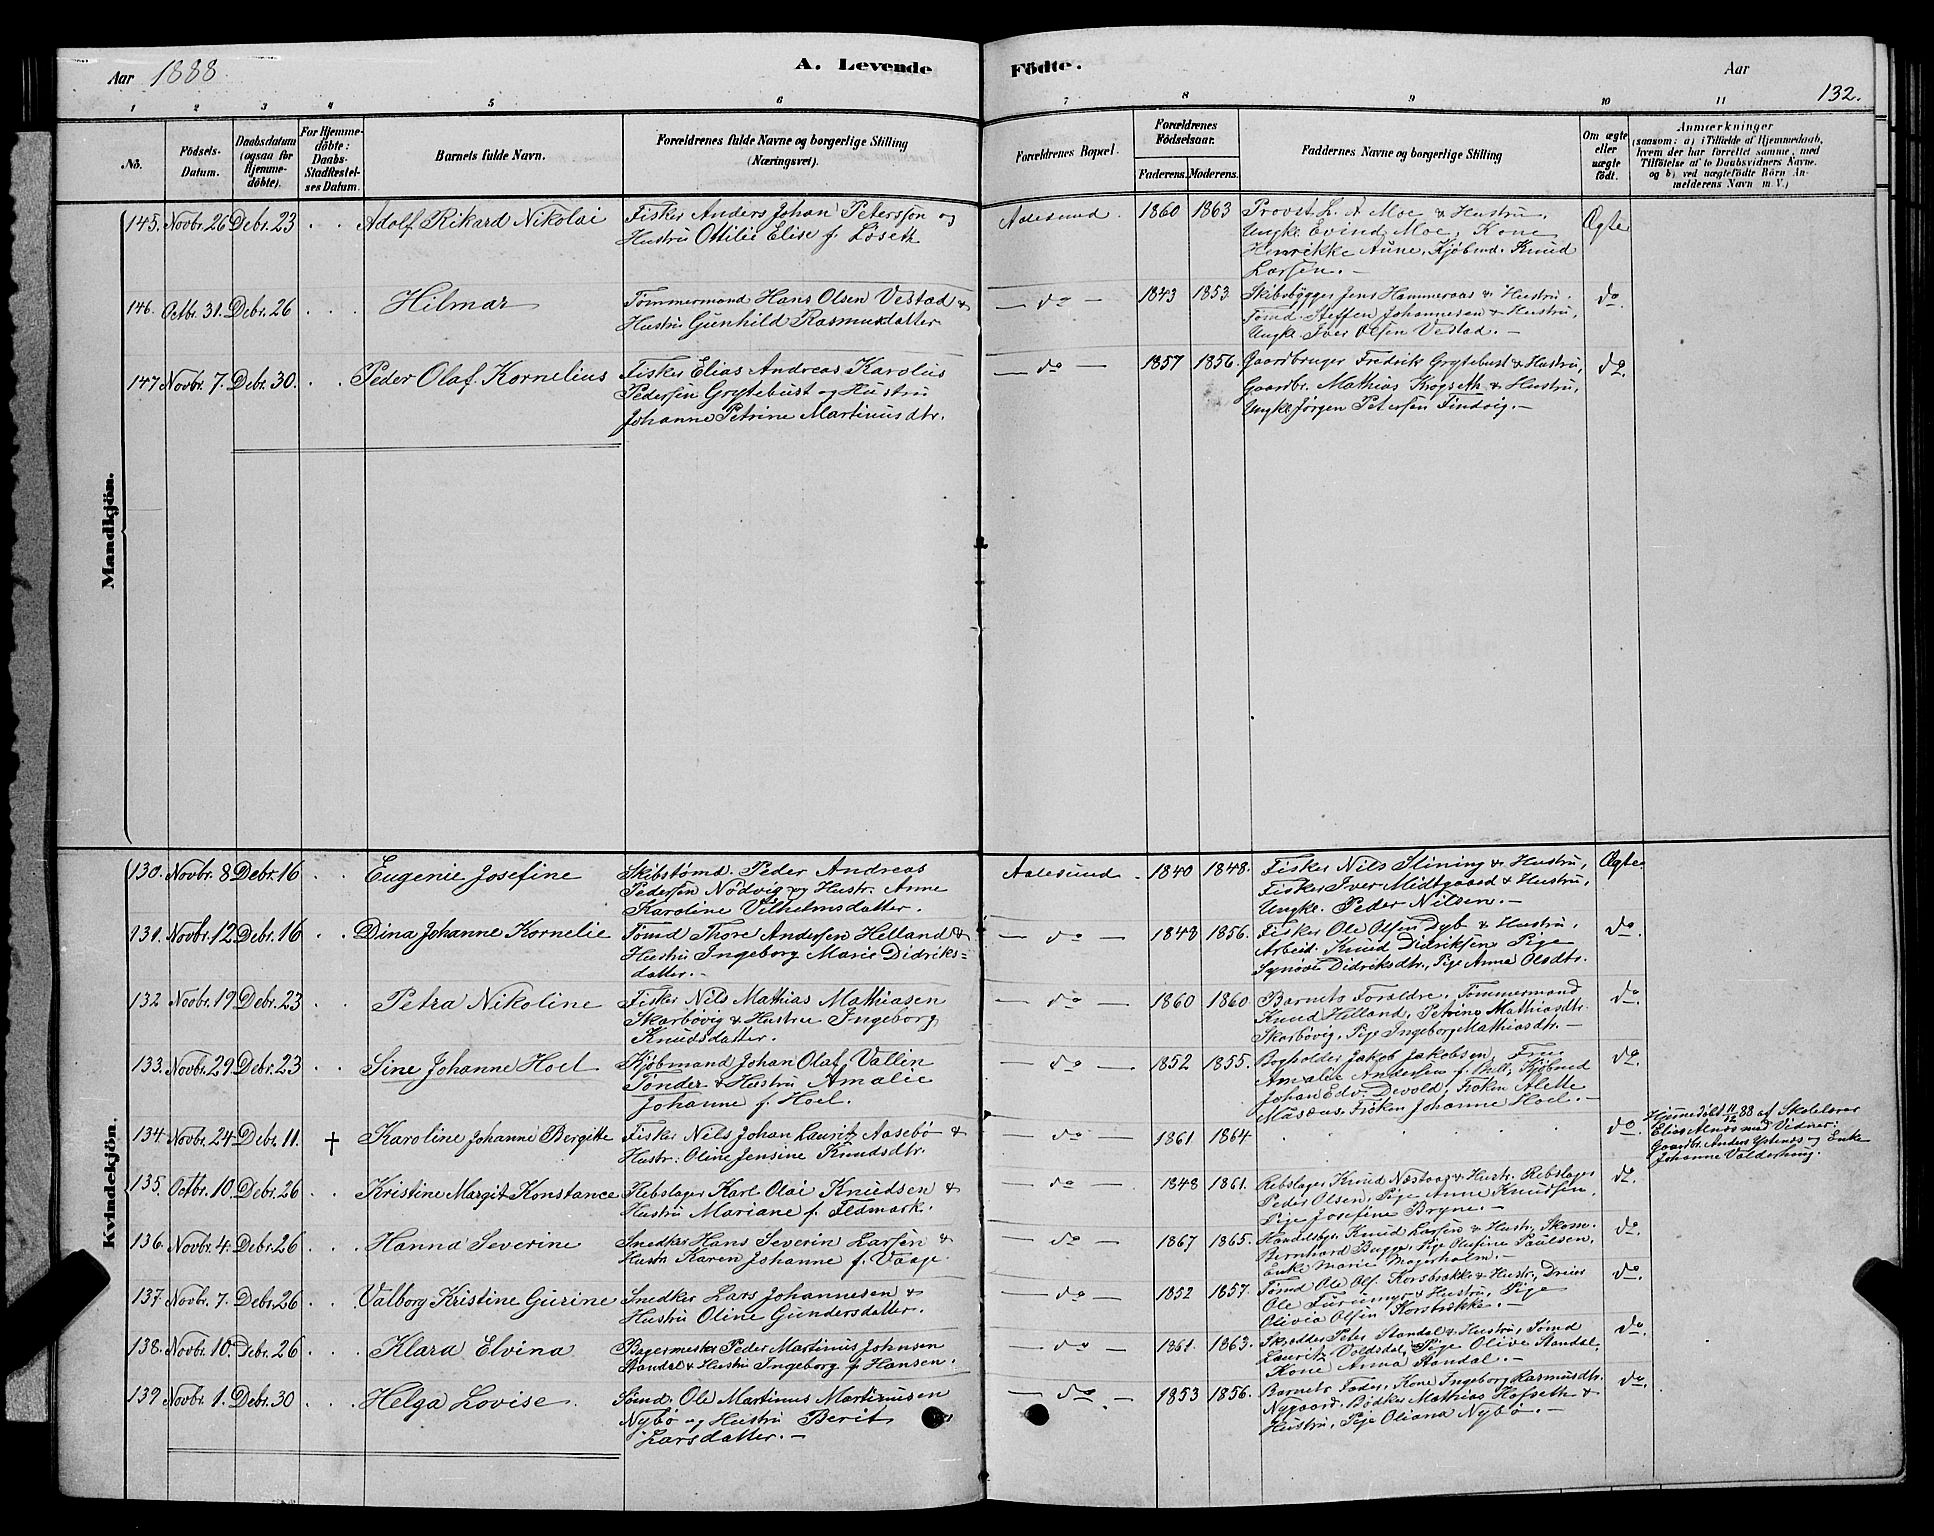 Aar 1888. A. Levende Födte. Aar 132.
1 2 3 4 5 6 7 8 9 10 11
Nö. Födsels-Datum. Daabsdatum (ogsaa for Hjemme-döbte). For Hjemme-döbte: Daabs-Stadfæstel-ses Datum. Barnets fulde Navn. Forældrenes fulde Navne og borgerlige Stilling (Næringsvei). Forældrenes Bopæl. Forældrenes Födselsaar. Faderens. Moderens. Faddernes Navne og borgerlige Stilling Om ægte eller uægte födt. Anmærkninger (saasom: a) i Tilfælde af Hjemmedaab, hvem der har forrettet samme, med Tilföielse af to Daabsvidners Navne. og b) ved uægtefödte Börn An-melderens Navn m. V.)
Mandkjön.
145. Novbr. 26 Debr. 23 Adolf Rikard Nikolai Fisker Anders Johan Peterssen og Aalesund. 1860 1863 Provst L. A. Moe & Hustru, Ægte
Hustru Ottilie Elise f. Løseth Ungk. Evind Moe, Kone
Henrikke Aune, Kjøbmd. Knud
Larsen. -
146. Octbr. 31. Debr. 26 Hilmar Tømmermand Hans Olsen Vestad & - do - 1843 1853. Skibsbygger Jens Hammeraas & Hustru, do.
Hustru Gunhild Rasmusdatter Tømd. Steffen Johannesen & Hustru,
Ungk. Iver Olsen Vestad. -
147 Novbr. 7. Debr. 30. Peder Olaf Kornelius Fisker Elias Andreas Karolus - do - 1857 1856. Gaardbruger Fredrik Grytebust & Hustru, do.
Pedersen Grytebust og Hustru Gaardbr. Mathias Krogseth & Hustru,
Johanne Petrine Martinusdtr. Ungk. Jørgen Petersen Findvig. -
Kvindekjön.
130. Novbr. 8 Debr. 16 Eugenie Josefine Skibstømd. Peder Andreas Aalesund. 1840 1848. Fisker Nils Slining & Hustru, Ægte
Pedersen Nødvig og Hustr. Anne Fisker Iver Midtgaard & Hustru,
Karoline Vilhelmsdatter. Ungk. Peder Nilsen. -
131. Novbr. 12 Debr. 16 Dina Johanne Kornelie Tømd Thore Andersen Helland & - do - 1848 1856. Fisker Ole Olsen Dyb & Hustru, do.
Hustru Ingeborg Marie Didriks= Arbeid. Knud Didriksen, Pige
datter. - Synøve Didriksdtr., Pige Anna Olsdtr.
132 Novbr. 19 Debr. 23 Petra Nikoline Fisker Nils Mathias Mathiasen - do - 1860 1860 Barnets Forældre, Tømmermand do.
Skarbøvig & Hustru Ingeborg Knud Helland, Petrine Mathiasdtr.
Knudsdatter. Skarbøvig, Pige Ingeborg Mathiasdtr. -
133. Novbr. 29 Debr. 23 Sine Johanne Hoel Kjøbmand Johan Olaf Vallin - do - 1852 1855. Bogholder Jakob Jakobsen, Fru do.
Tønder & Hustru Amalie Amalie Andersen f. Bull, Kjøbmd
Johanne f. Hoel. Johan Edv. Devold, Frøken Alette
Frøken Johanne Hoel. -
134 Novbr. 24 Debr. 11. † Karoline Johanne Bergitte Fisker Nils Johan Lauritz Aasebø & - do - 1861 1864 do. Hjemmedøbt 11/12 88 af Skolelærer
Hustr: Oline Jensine Knudsdtr. Elias Alnæs med Vidner:
Gaardbr. Anders Ystenæs og Enke
Johanne Valderhaug.
135. Octbr. 10. Debr. 26 Kristine Margit Konstance Rebslager Karl Olai Knudsen & - do - 1848 1861. Rebslager Knud Næsvaag & Hustr. Rebslager do.
Hustru Mariane f. Ildmark. Peder Olsen, Pige Anne Knudsen,
Pige Josefine Bryne. -
136. Novbr. 4. Debr. 26 Hanna Severine Snedker Hans Severin Larsen & - do - 1867 1865. Handelsbr. Knud Larsen & Hustr, Skom. do.
Hustr Karen Johanne f. Vaage. Bernhard Bugge, Pige Olufine Paulsen,
Enke Marie Magerholm. -
137 Novbr. 7. Debr. 26 Valborg Kristine Gurine Snedker Lars Johannesen & - do - 1852 1857. Tømd Ole Ols. Korsbrække & Hustr, Dreier do.
Hustru Oline Gundersdatter. Ole Furumyr & Hustru, Pige
Olivia Olsen Korsbrække. -
138. Novbr. 10. Debr. 26 Klara Elvina Bagermester Peder Martinus Johnsen - do - 1861. 1863. Skrædder Peter Standal & Hustru, Tømd do.
Standal & Hustru Ingeborg f. Hansen. Lauritz Voldsdal, Pige Olive Standal,
Kone Anna Standal. -
139 Novbr. 1. Debr. 30 Helga Lovise. Tømd. Ole Martinus Martinusen - do. - 1853 1856. Barnets Fader, Kone Ingeborg Rasmusdtr. do.
Nybø og Hustru Berit Nygaard, Bødker Mathias Hofseth &
Larsdatter. - Hustru, Pige Oliana Nybø. -